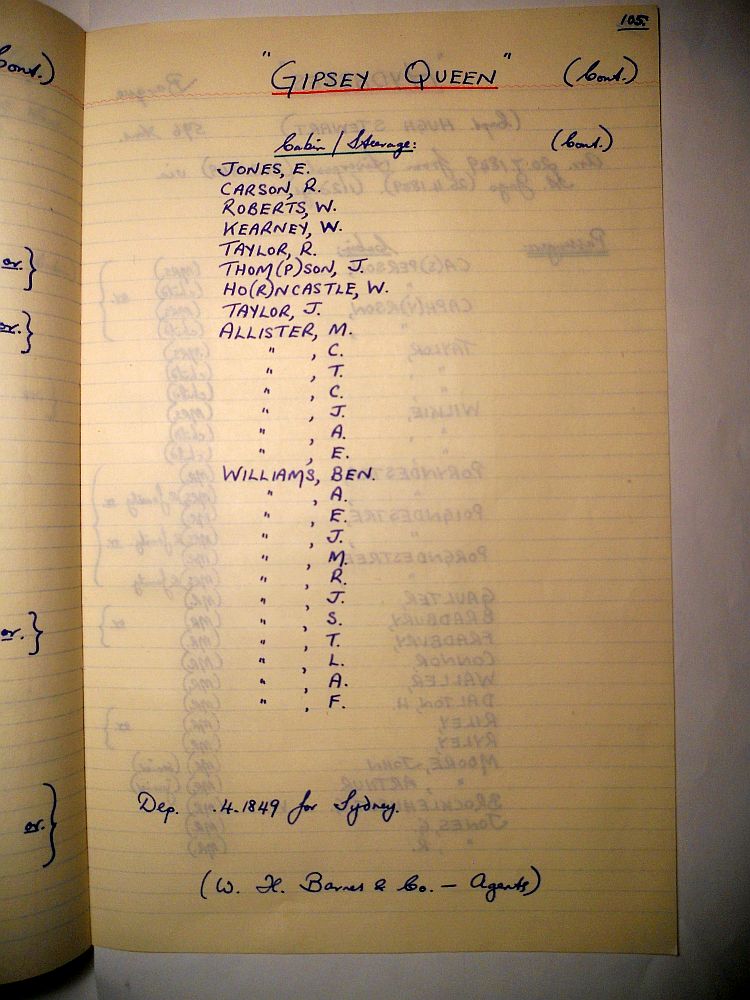 105.
"GIPSEY QUEEN" (Cont.)
Cabin / Steerage: (Cont.)
JONES, E.
CARSON, R.
ROBERTS, W.
KEARNEY, W.
TAYLOR, R.
THOM(P)SON, J.
HO(R)NCASTLE, W.
TAYLOR, J.
ALLISTER, M.
" , C.
" , T.
" , C.
" , J.
" , A.
" , E.
WILLIAMS, BEN.
" , A.
" , E.
" , J.
" , M.
" , R.
" , J.
" , S.
" , T.
" , L.
" , A.
" , F.
Dep. .4.1849 for Sydney.
(W. H. Barnes & Co. — Agents)
Cont.)
or. }
or. }
or. }
or. }